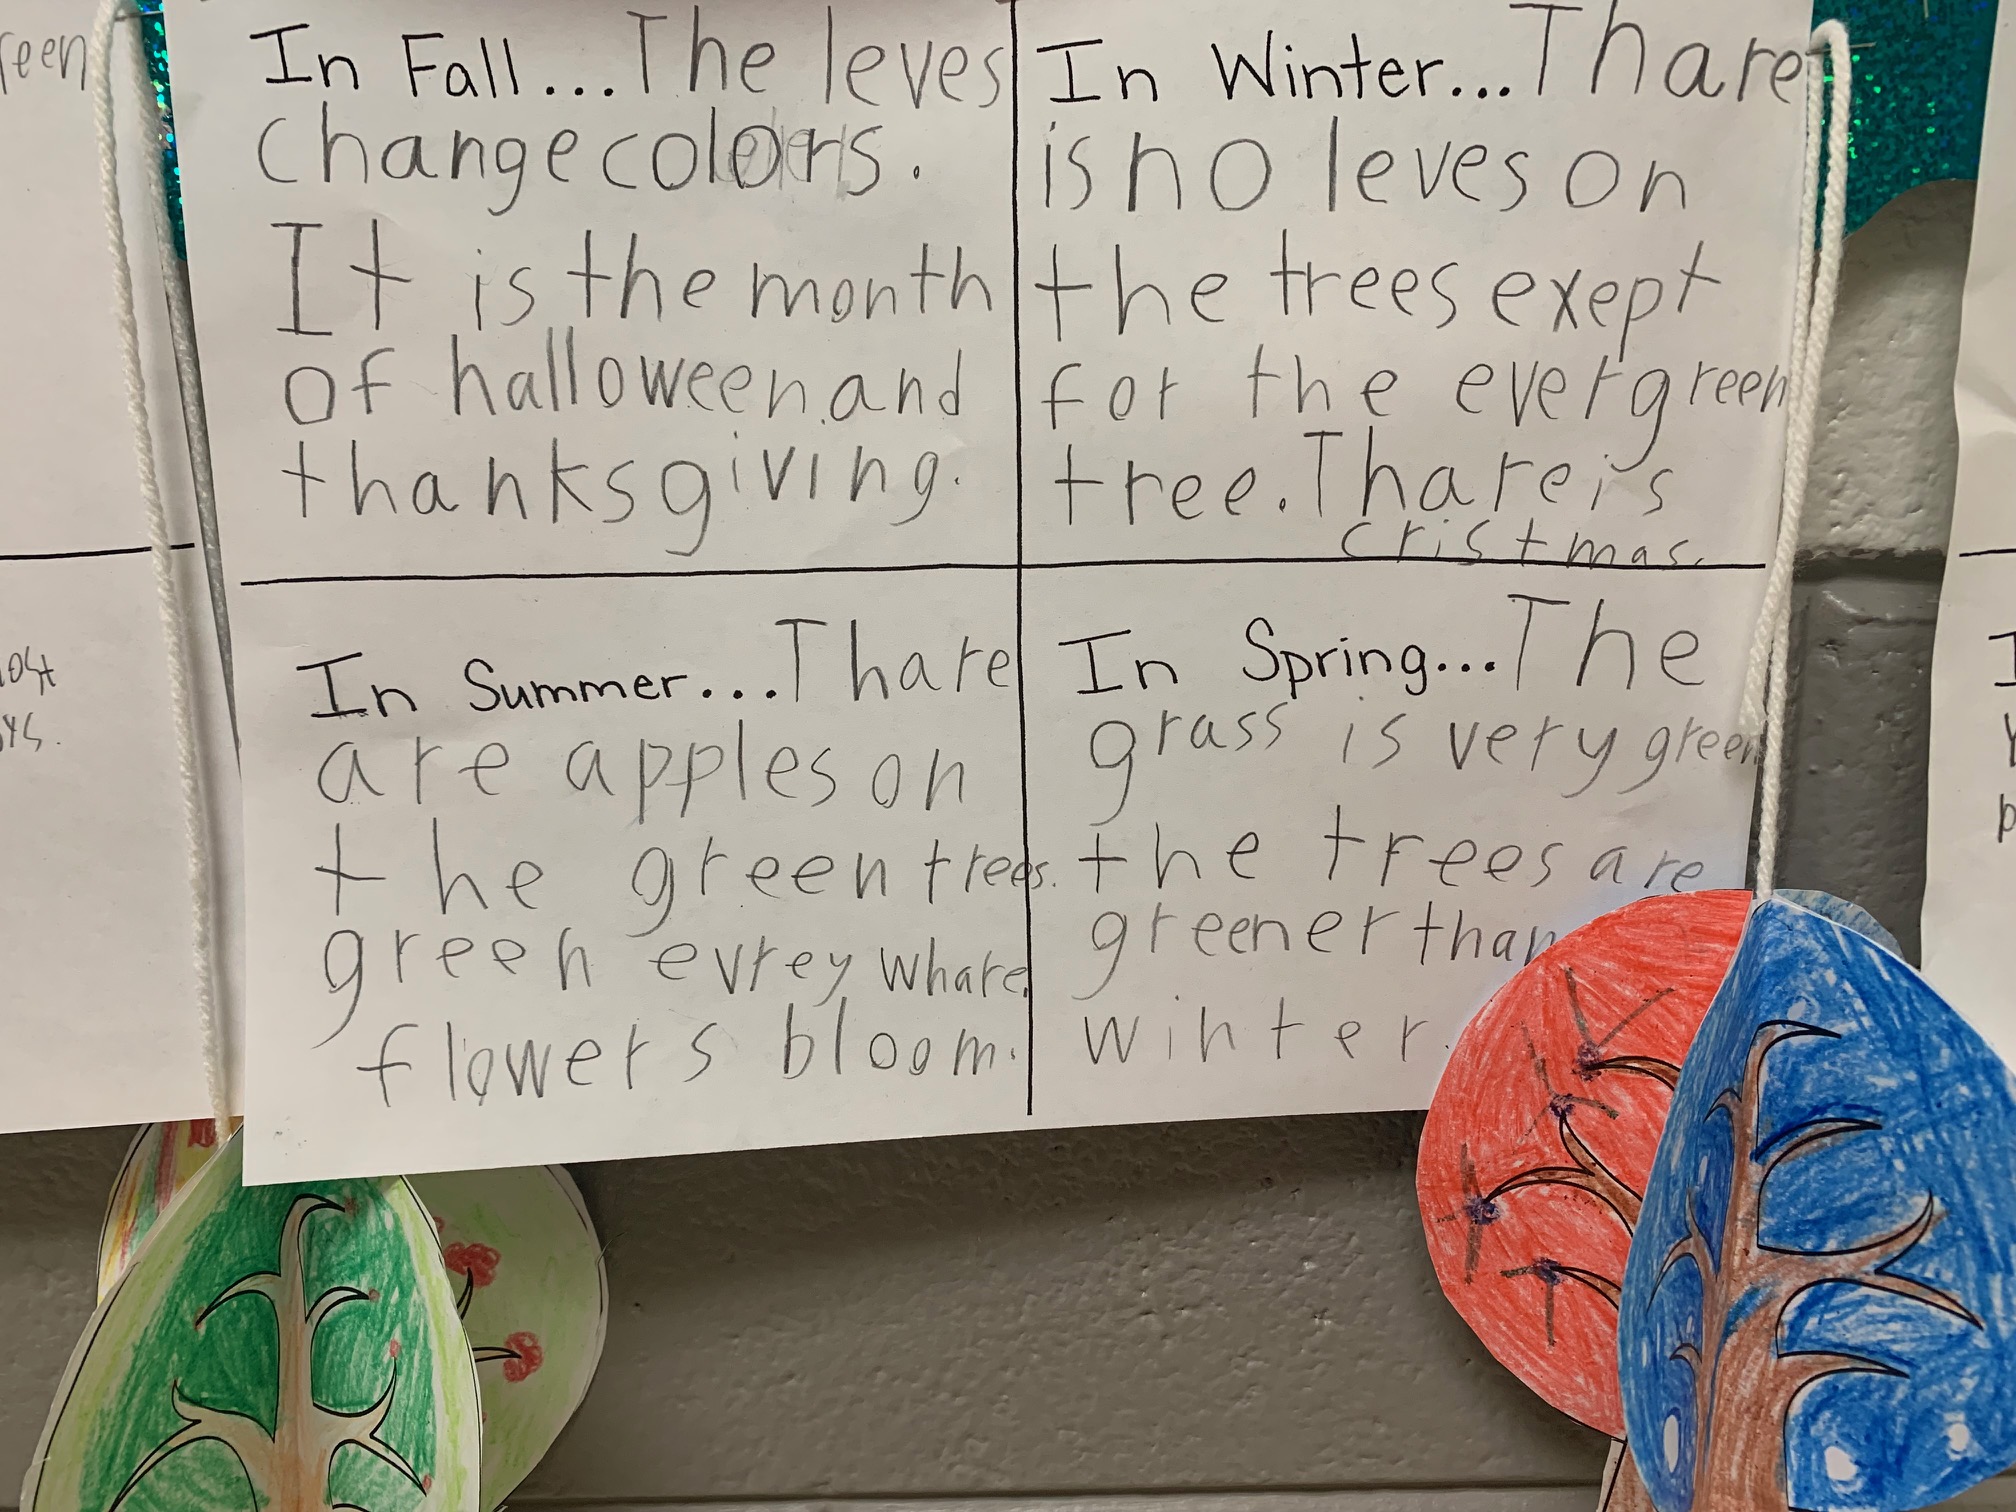 In Fall... The leves
change colors.
It is the month
of halloween and
thanksgiving.
In Winter... Thare
is no leves on
the trees exept
for the evergreen
tree. Thare is
cristmas.
In Summer... Thare
are apples on
the green trees.
green evrey whare.
flowers bloom.
In Spring... The
grass is very green
the trees are
greener than
winter.